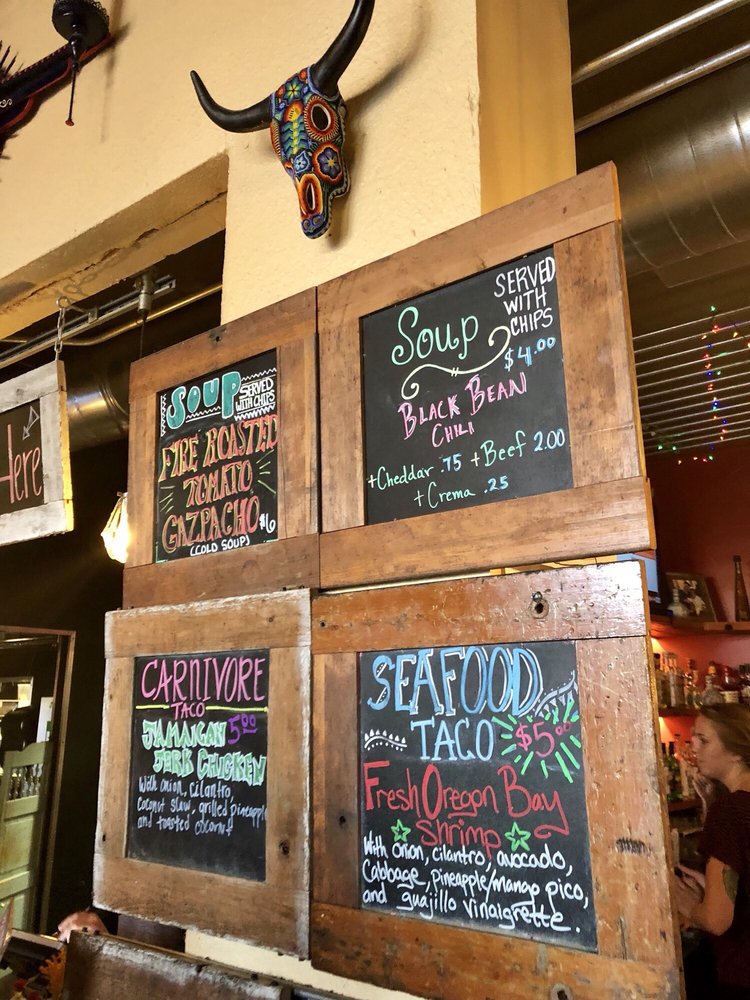 Here
SOUP
SERVED
WITH CHIPS
FIRE ROASTED
TOMATO
GAZPACHO $6
(COLD SOUP)
Soup
SERVED
WITH
CHIPS
$4.00
BLACK BEAN
CHILI
+Cheddar .75 +Beef 2.00
+Crema .25
CARNIVORE
TACO
JAMAICAN 5.00
JERK CHICKEN
With onion, cilantro,
coconut slaw, grilled pineapple
and toasted coconut
SEAFOOD
TACO $5.00
Fresh Oregon Bay
Shrimp
With onion, cilantro, avocado,
Cabbage, pineapple/mango pico,
and guajillo vinaigrette.